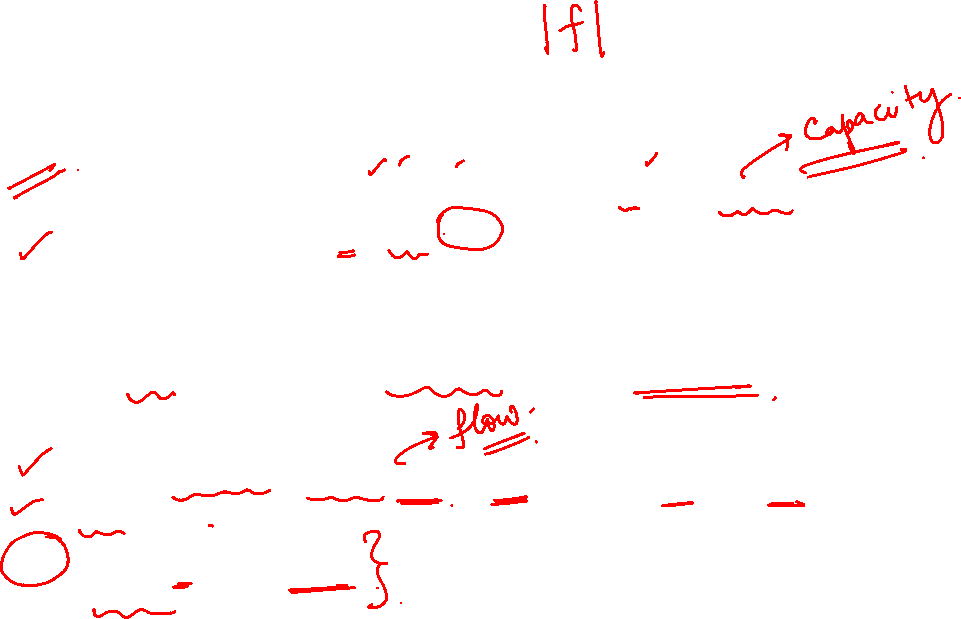 |f|
Capacity.
flow.